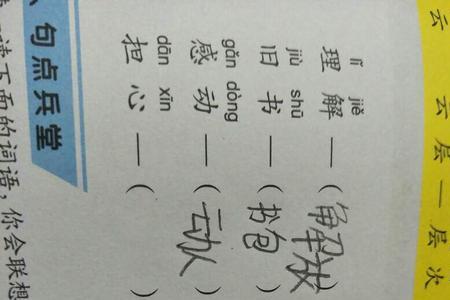 云 云层—层次
lǐ jiě
理解—(解放)
jiù shū
旧书—(书包)
gǎn dòng
感动—(动人)
dān xīn
担心—( )
句点兵堂
读下面的词语，你会联想